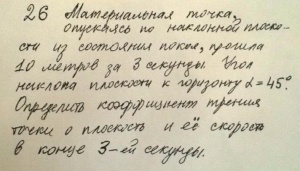 26 Материальная точка,
опускаясь по наклонной плоско-
сти из состояния покоя, прошла
10 метров за 3 секунды. Угол
наклона плоскости к горизонту α=45°.
Определить коэффициент трения
точки о плоскость и её скорость
в конце 3-ей секунды.